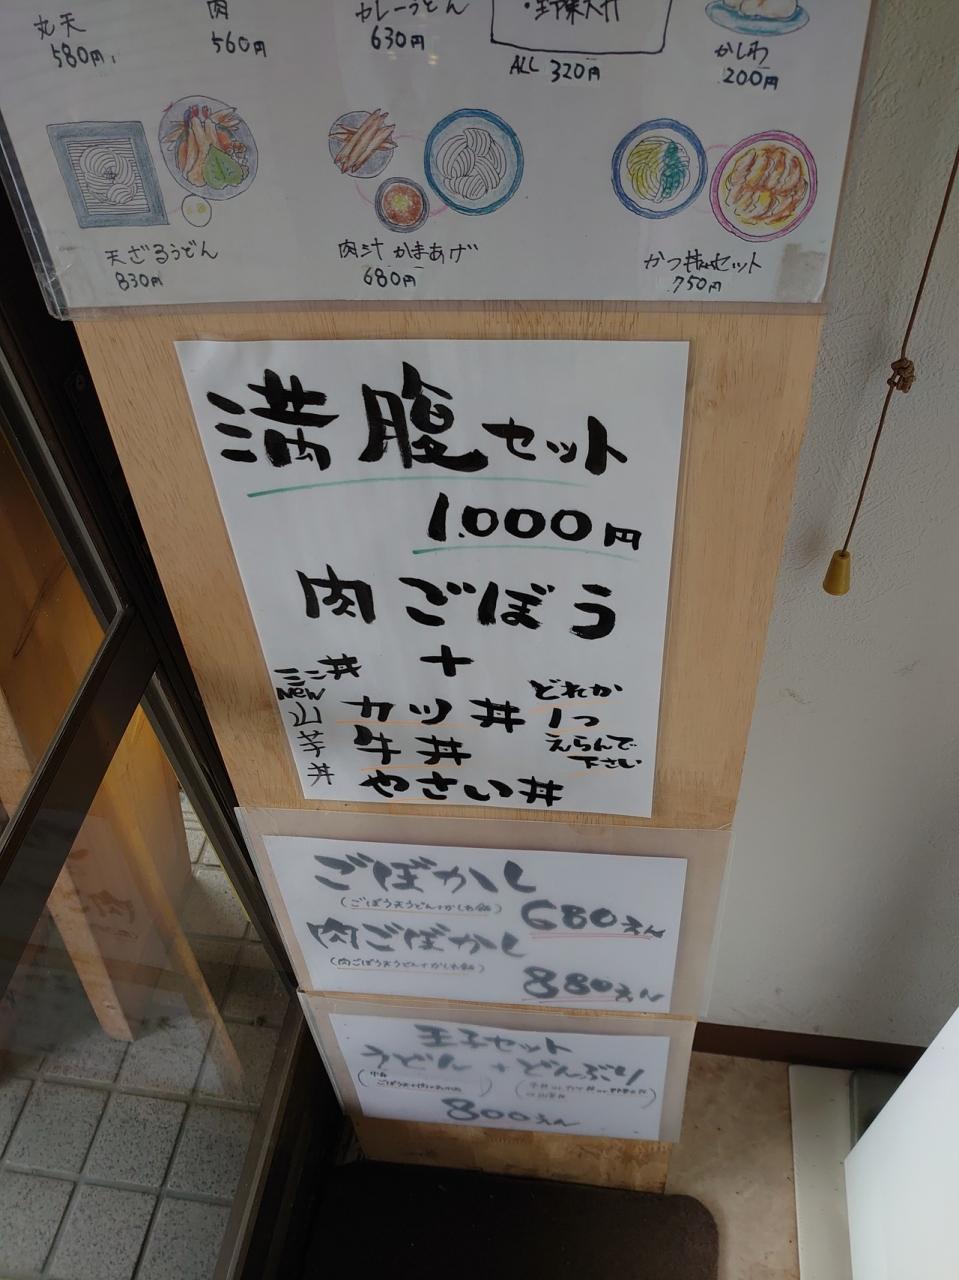 丸天
580円
肉
560円
カレーうどん
630円
・野菜天丼
ALL 320円
かしわ
200円
天ざるうどん
830円
肉汁 かまあげ
680円
かつ丼セット
750円
満腹セット
1.000円
肉ごぼう
+
ミニ丼
New
山芋丼
カツ丼
牛丼
やさい丼
どれか
1つ
えらんで
下さい
ごぼかし
(ごぼう天うどん+かしわ飯)
680えん
肉ごぼかし
(肉ごぼう天うどん+かしわ飯)
880えん
王子セット
うどん+どんぶり
800えん